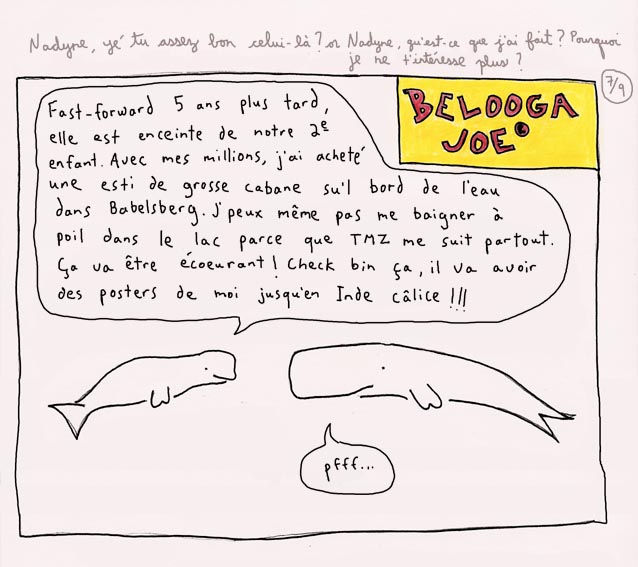 Nadyne, yé tu assez bon celui-là? or Nadyne, qu'est-ce que j'ai fait? Pourquoi
je ne t'intéresse plus?
7/9
BELOOGA
JOE
Fast-forward 5 ans plus tard,
elle est enceinte de notre 2e
enfant. Avec mes millions, j'ai acheté
une esti de grosse cabane su'l bord de l'eau
dans Babelsberg. J'peux même pas me baigner à
poil dans le lac parce que TMZ me suit partout.
Ça va être écoeurant! Check bin ça, il va avoir
des posters de moi jusqu'en Inde câlice!!!
pfff...